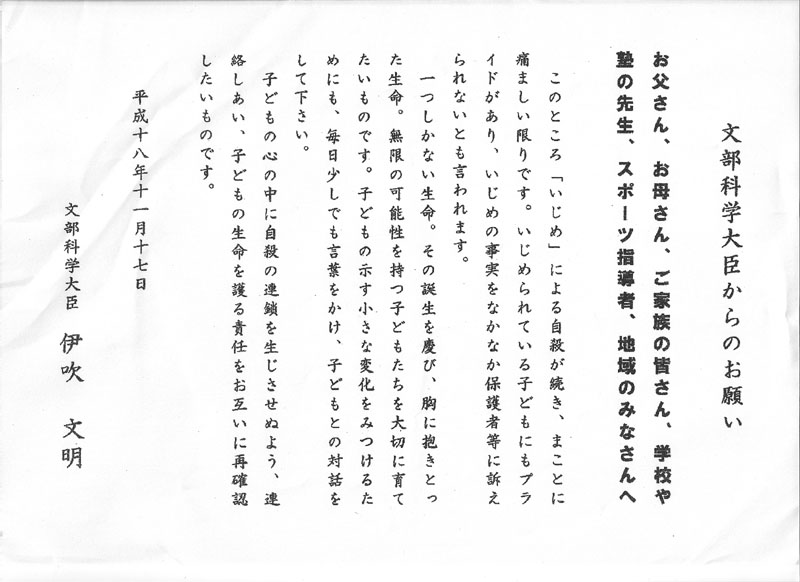 文部科学大臣からのお願い
お父さん、お母さん、ご家族の皆さん、学校や
塾の先生、スポーツ指導者、地域のみなさんへ
このところ「いじめ」による自殺が続き、まことに
痛ましい限りです。いじめられている子どもにもプラ
イドがあり、いじめの事実をなかなか保護者等に訴え
られないとも言われます。
一つしかない生命。その誕生を慶び、胸に抱きとっ
た生命。無限の可能性を持つ子どもたちを大切に育て
たいものです。子どもの示す小さな変化をみつけるた
めにも、毎日少しでも言葉をかけ、子どもとの対話を
して下さい。
子どもの心の中に自殺の連鎖を生じさせぬよう、連
絡しあい、子どもの生命を護る責任をお互いに再確認
したいものです。
平成十八年十一月十七日
文部科学大臣 伊吹 文明